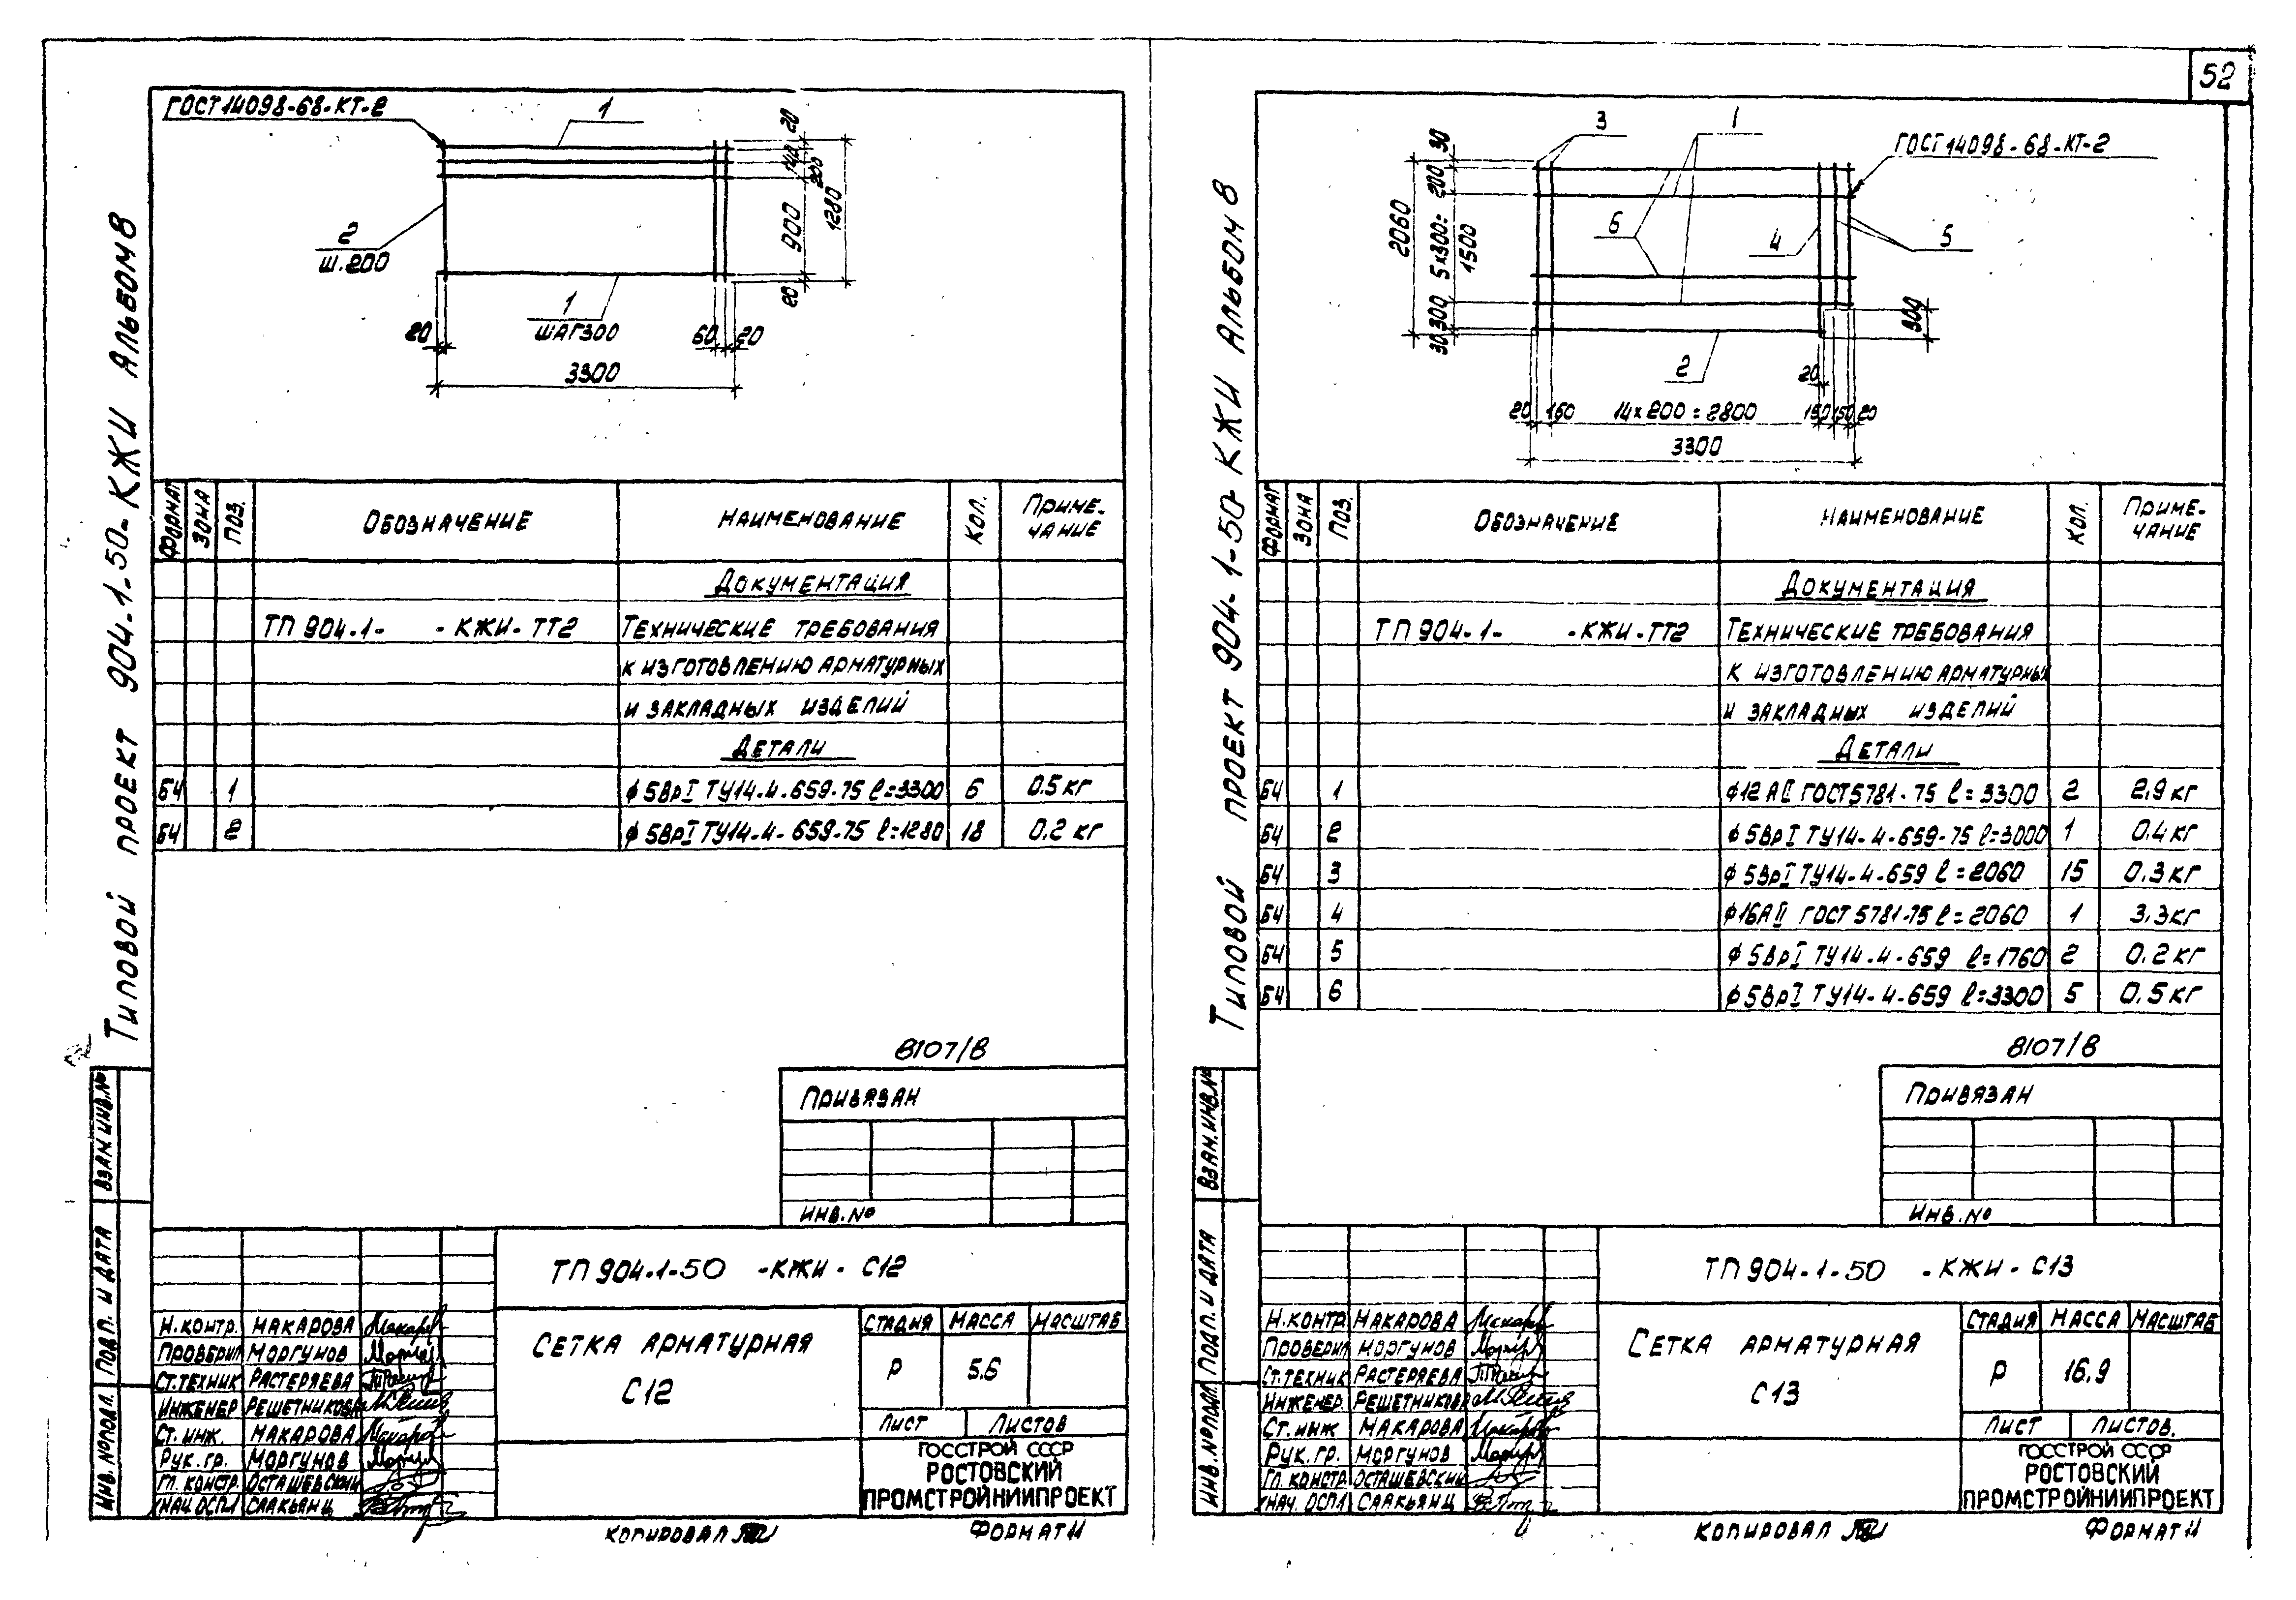 52
Типовой проект 904-1-50-КЖИ Альбом 8
ГОСТ 14098-68-КТ-2
1
20
140
200
900
1280
20
2
Ш.200
1
ШАГ 300
20
60
20
3300
ФОРМАТ ЗОНА ПОЗ. ОБОЗНАЧЕНИЕ НАИМЕНОВАНИЕ КОЛ. ПРИМЕ-
ЧАНИЕ
ДОКУМЕНТАЦИЯ
ТП 904-1- -КЖИ-ТТ2 ТЕХНИЧЕСКИЕ ТРЕБОВАНИЯ
К ИЗГОТОВЛЕНИЮ АРМАТУРНЫХ
И ЗАКЛАДНЫХ ИЗДЕЛИЙ
ДЕТАЛИ
БЧ 1 ф 5ВрI ТУ14-4-659-75 ℓ=3300 6 0.5 кг
БЧ 2 ф 5ВрI ТУ14-4-659-75 ℓ=1280 18 0.2 кг
8107/8
ПРИВЯЗАН
ИНВ.№
ВЗАМ.ИНВ.№
ПОДП. И ДАТА
ИНВ.№ПОДЛ.
ТП 904-1-50 -КЖИ- С12
Н.КОНТР. МАКАРОВА
ПРОВЕРИЛ МОРГУНОВ
СТ.ТЕХНИК РАСТЕРЯЕВА
ИНЖЕНЕР РЕШЕТНИКОВА
СТ. ИНЖ. МАКАРОВА
РУК. ГР. МОРГУНОВ
ГЛ. КОНСТР. ОСТАШЕВСКИЙ
НАЧ. ОСП1 СААКЬЯНЦ
СЕТКА АРМАТУРНАЯ
С12
СТАДИЯ МАССА МАСШТАБ
Р 5.6
ЛИСТ ЛИСТОВ
ГОССТРОЙ СССР
РОСТОВСКИЙ
ПРОМСТРОЙНИИПРОЕКТ
КОПИРОВАЛ
ФОРМАТ 11
Типовой проект 904-1-50-КЖИ Альбом 8
3
1
ГОСТ 14098-68-КТ-2
30
200
5х300=
1500
2060
300
30
6
4
5
300
2
20
20 160 14х200=2800 150 150 20
3300
ФОРМАТ ЗОНА ПОЗ. ОБОЗНАЧЕНИЕ НАИМЕНОВАНИЕ КОЛ. ПРИМЕ-
ЧАНИЕ
ДОКУМЕНТАЦИЯ
ТП 904-1- -КЖИ-ТТ2 ТЕХНИЧЕСКИЕ ТРЕБОВАНИЯ
К ИЗГОТОВЛЕНИЮ АРМАТУРНЫХ
И ЗАКЛАДНЫХ ИЗДЕЛИЙ
ДЕТАЛИ
БЧ 1 ф12 АII ГОСТ 5781-75 ℓ=3300 2 2,9 кг
БЧ 2 ф 5ВрI ТУ14-4-659-75 ℓ=3000 1 0.4 кг
БЧ 3 ф 5ВрI ТУ14-4-659 ℓ=2060 15 0.3 кг
БЧ 4 ф16АII ГОСТ 5781-75 ℓ=2060 1 3,3 кг
БЧ 5 ф 5ВрI ТУ14-4-659 ℓ=1760 2 0.2 кг
БЧ 6 ф 5ВрI ТУ14-4-659 ℓ=3300 5 0.5 кг
8107/8
ПРИВЯЗАН
ИНВ.№
ВЗАМ.ИНВ.№
ПОДП. И ДАТА
ИНВ.№ПОДЛ.
ТП 904-1-50 -КЖИ- С13
Н.КОНТР МАКАРОВА
ПРОВЕРИЛ МОРГУНОВ
СТ.ТЕХНИК РАСТЕРЯЕВА
ИНЖЕНЕР. РЕШЕТНИКОВА
СТ. ИНЖ МАКАРОВА
РУК. ГР. МОРГУНОВ
ГЛ. КОНСТР ОСТАШЕВСКИЙ
НАЧ. ОСП1 СААКЬЯНЦ
СЕТКА АРМАТУРНАЯ
С13
СТАДИЯ МАССА МАСШТАБ
Р 16,9
ЛИСТ ЛИСТОВ.
ГОССТРОЙ СССР
РОСТОВСКИЙ
ПРОМСТРОЙНИИПРОЕКТ
КОПИРОВАЛ
ФОРМАТ 11